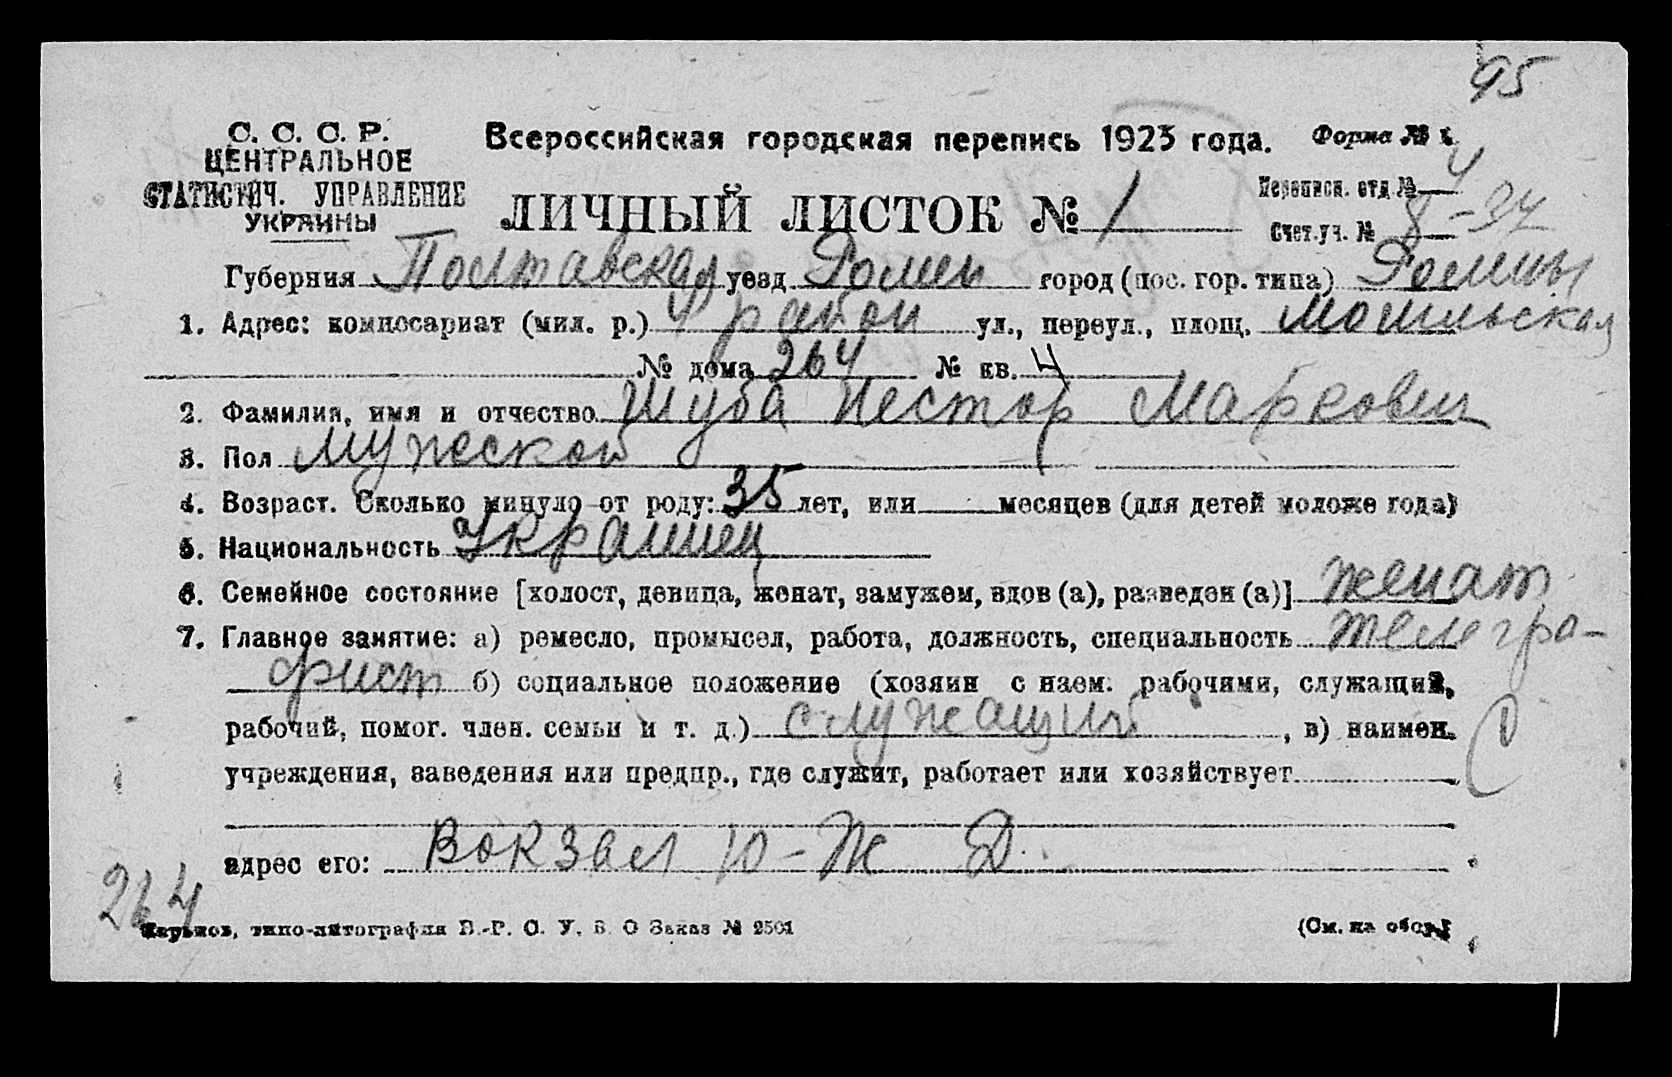 95
С. С. С. Р.
ЦЕНТРАЛЬНОЕ
СТАТИСТИЧ. УПРАВЛЕНИЕ
УКРАИНЫ
Всероссийская городская перепись 1923 года.
Форма № 1.
ЛИЧНЫЙ ЛИСТОК № 1
Переписн. отд. № 4
Счет. уч. № 8-34
Губерния Полтавская уезд Ромен город (пос. гор. типа) Ромны
1. Адрес: комиссариат (мил. р.) 4 район ул., переул., площ.
№ дома 264 № кв. 4
2. Фамилия, имя и отчество Шуба Нестор Маркович
3. Пол Мужеской
4. Возраст. Сколько минуло от роду: 35 лет, или месяцев (для детей моложе года)
5. Национальность Украинец
6. Семейное состояние [холост, девица, женат, замужем, вдов (а), разведен (а)] женат
7. Главное занятие: а) ремесло, промысел, работа, должность, специальность телегра-
фист б) социальное положение (хозяин с наем. рабочими, служащий,
рабочий, помог. член. семьи и т. д.) служащий , в) наимен.
учреждения, заведения или предпр., где служит, работает или хозяйствует
адрес его: Вокзал Ю-Ж Д.
264
Харьков, типо-литография В.-Р. С. У. В. О Заказ № 2501
(См. на обор.)